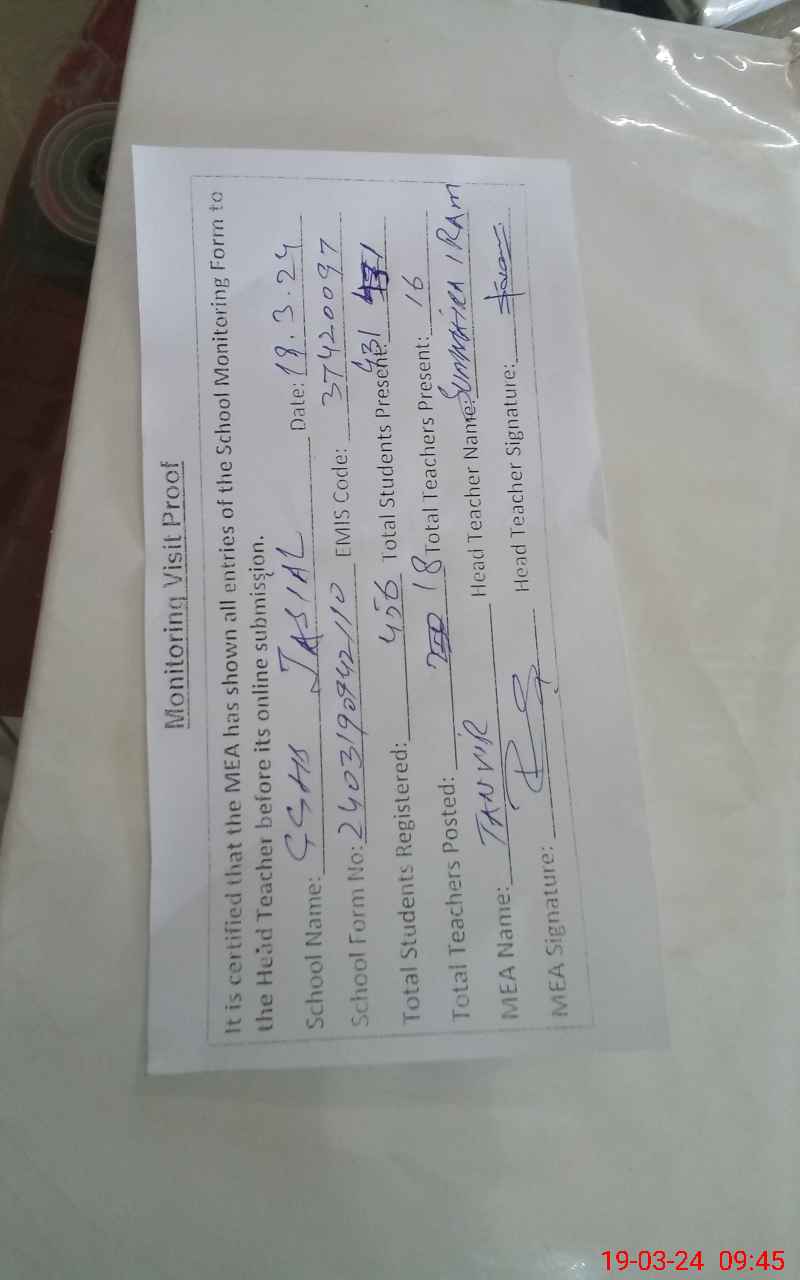 Monitoring Visit Proof
It is certified that the MEA has shown all entries of the School Monitoring Form to
the Head Teacher before its online submission.
School Name: GGHS JASIAL Date: 19.3.24
School Form No: 2403190942110 EMIS Code: 37420097
Total Students Registered: 456 Total Students Present: 431
Total Teachers Posted: 18 Total Teachers Present: 16
MEA Name: TANVIR Head Teacher Name: SUMMAIRA IRAM
MEA Signature: Head Teacher Signature:
19-03-24 09:45